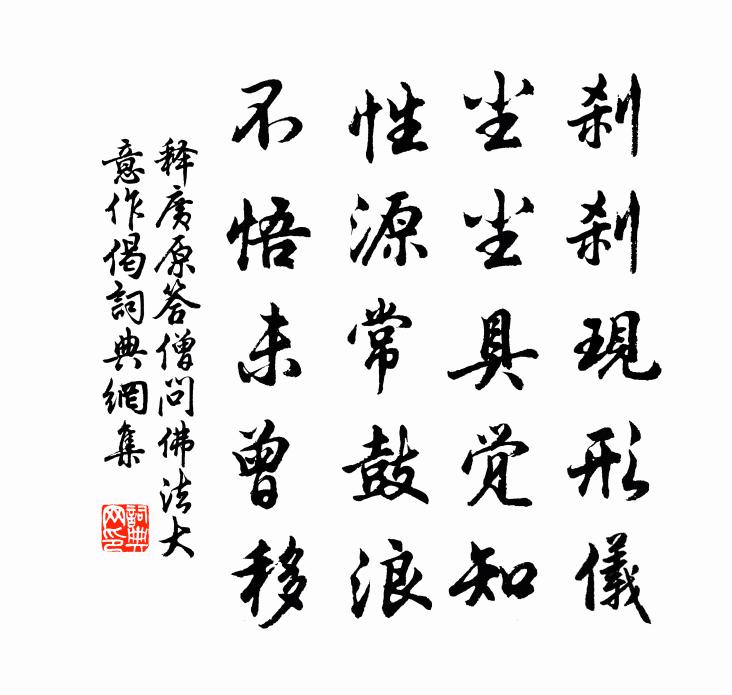 刹刹現形儀
尘尘具觉知
性源常鼓浪
不悟未曾移
释廣原答僧問佛法大
意作偈詞典網集
詞典
网印